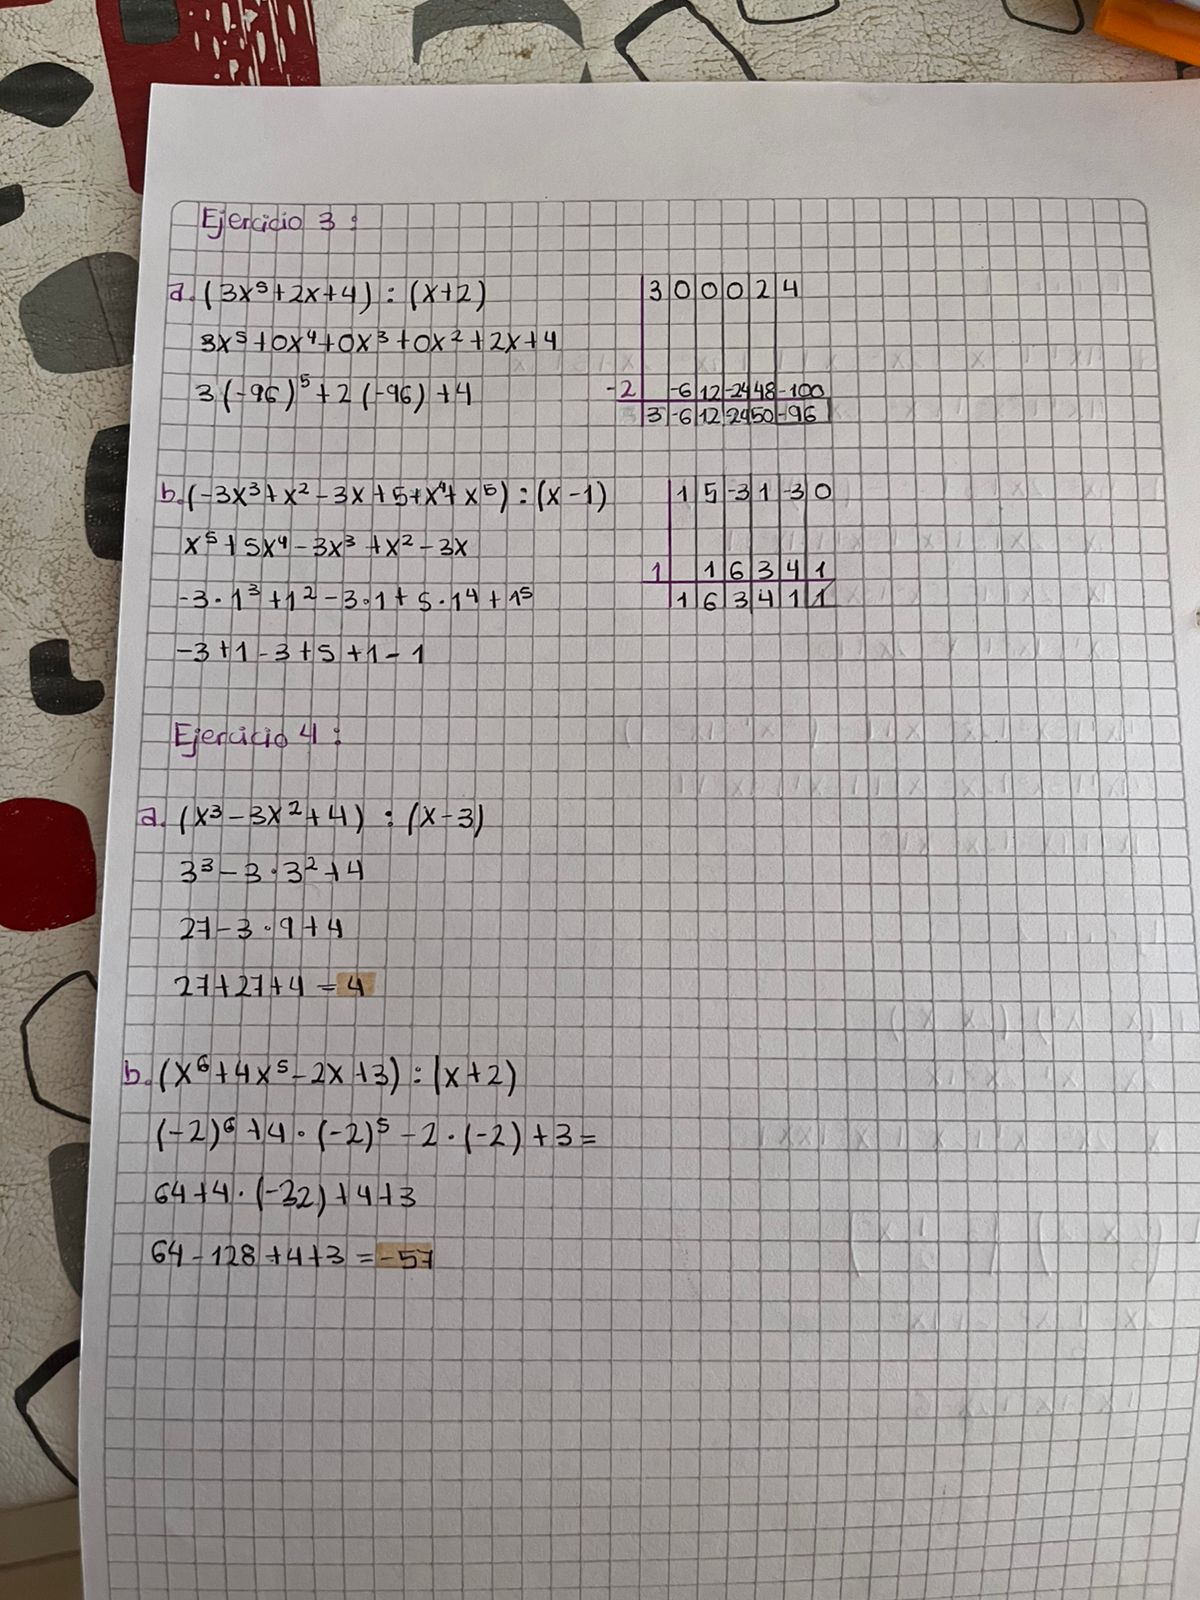 Ejercicio 3:
a. (3x⁵+2x+4) : (x+2)
3x⁵+0x⁴+0x³+0x²+2x+4
3(-96)⁵+2(-96)+4
3 0 0 0 2 4
-2 -6 12 -24 48 -100
3 -6 12 -24 50 -96
b. (-3x³+x²-3x+5+x⁴+x⁵) : (x-1)
x⁵+5x⁴-3x³+x²-3x
-3·1³+1²-3·1+5·1⁴+1⁵
-3+1-3+5+1-1
1 5 -3 1 -3 0
1 1 6 3 4 1
1 6 3 4 1 1
Ejercicio 4:
a. (x³-3x²+4) : (x-3)
3³-3·3²+4
27-3·9+4
27+27+4=4
b. (x⁶+4x⁵-2x+3) : (x+2)
(-2)⁶+4·(-2)⁵-2·(-2)+3=
64+4·(-32)+4+3
64-128+4+3=-57